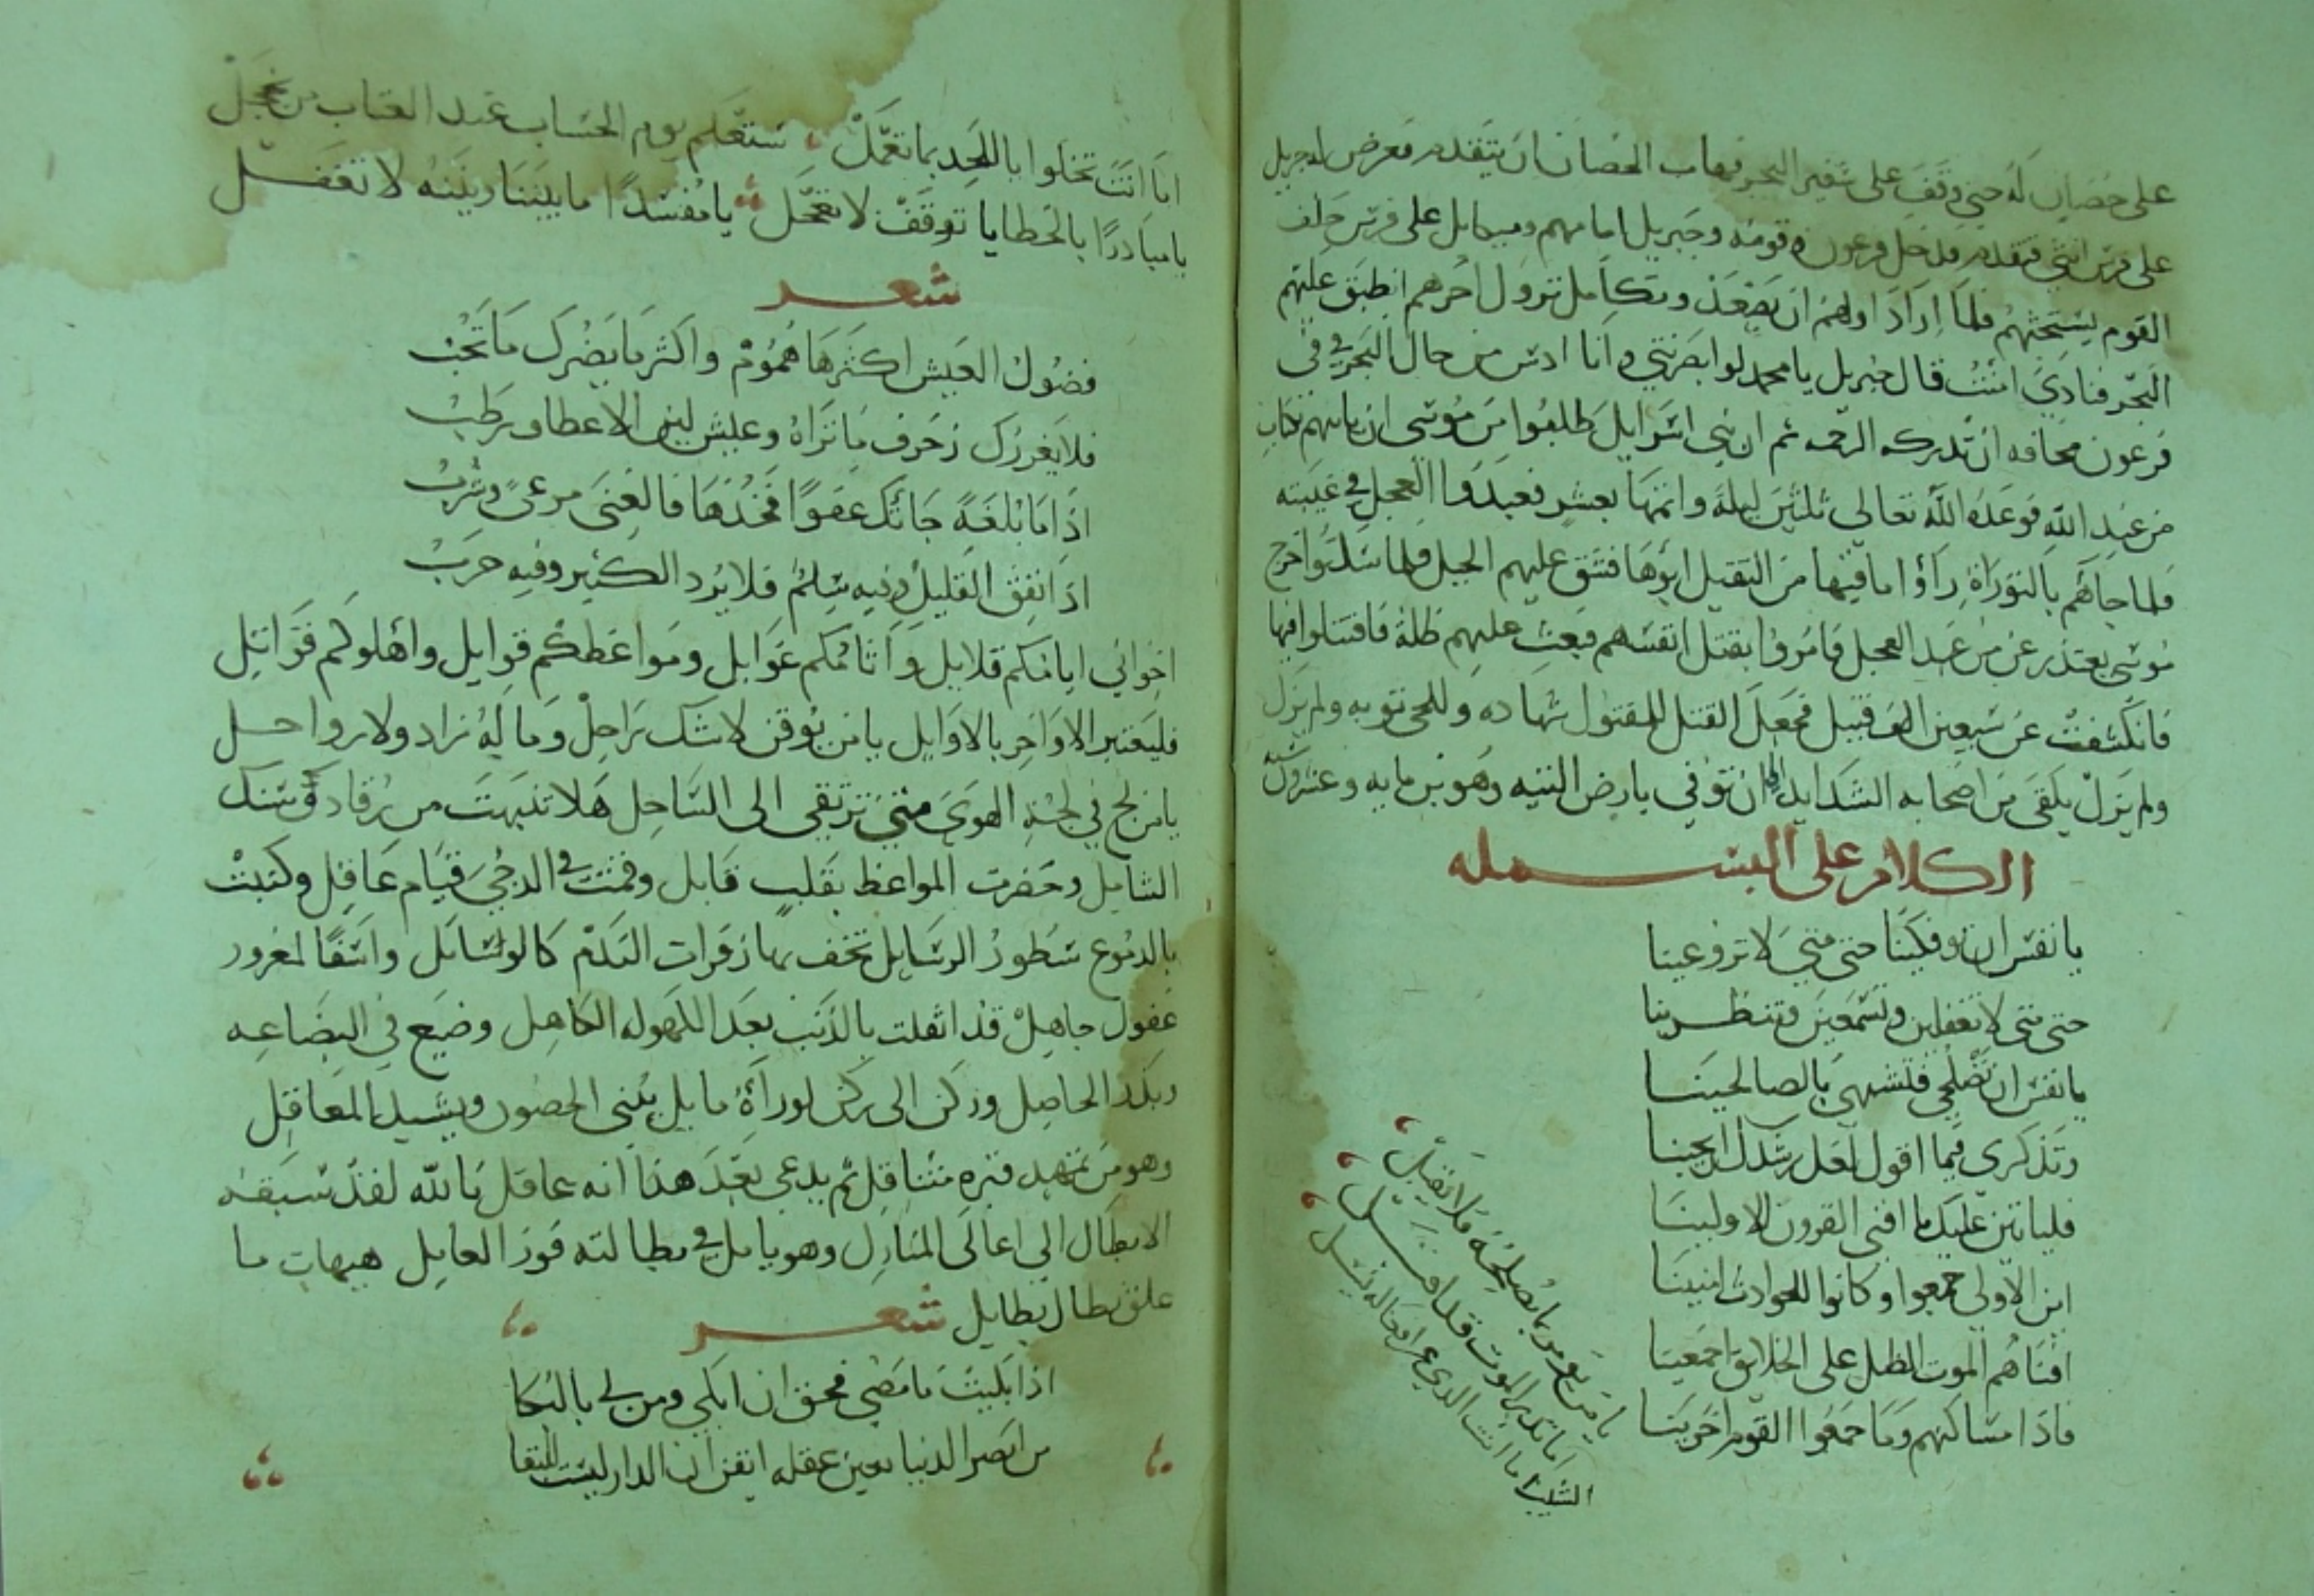 على حصان له حتى وقف على شفير البحر فهاب الحصان ان يتقدم فعرض له جبريل
على فرس انثى فتقدم فدخل فرعون وقومه وجبريل امامهم وميكايل على فرس خلف
القوم يستحثهم فلما اراد اولهم ان يصعد وتكامل نزول اخرهم انطبق عليهم
البحر فنادى امنت قال جبريل يا محمد لو ابصرتني وانا ادس من حال البحر في في
فرعون مخافه ان تدركه الرحمه ثم ان بني اسرايل طلبوا من موسى ان ياتيهم بكتاب
من عند الله فوعده الله تعالى ثلثين ليلة واتمها بعشر فعبدوا العجل في غيبته
فلما جاهم بالتوراة راوا ما فيها من التثقيل ابوها فنتق عليهم الجبل فلما سكنوا خرج
موسى يعتذر عن من عبد العجل فامروا بقتل انفسهم فبعث عليهم ظلة فاقتتلوا فيها
فانكشفت عن سبعين الف قتيل فجعل القتل للمقتول شهاده وللحي توبه ولم يزل
ولم يزل يلقى من اصحابه الشدايد الى ان توفي بارض التيه وهو بن مايه وعشرون سنه
الكلام على البسمله
يا نفس ان توفكينا حتى متى لا ترعوينا
حتى متى لا تعقلين وتسمعين وتنظرينا
يا نفس ان لم تصلحي فتشبهي بالصالحينا
وتذكري فيما اقول لعل رشدك ان يحينا
فلياتين عليك ما افنى القرون الاولينا
اين الاولى جمعوا وكانوا للحوادث امنينا
افناهم الموت المطل على الخلايق اجمعينا
فاذا مساكنهم وما جمعوا القوم اخرينا
يا من يومر بما يصلحه فلا يقبل
اما نذير الموت قد اقبل
الست انت الذي عن افعاله تسل
اما انت تخلوا باللحد بما تعمل ستعلم يوم الحساب عند العتاب من يخجل
يا مبادرا بالخطايا توقف لا تعجل يا مفسدا ما بيننا وبينه لا تغفل
شعر
فضول العيش اكثرها هموم واكثر ما يضرك ما تحب
فلا يغررك زخرف ما تراه وعيش لين الاعطاف رطب
اذا ما بلغة جاتك عفوا فخذها فالغنى مرعى وشرب
اذا اتفق القليل وفيه سلم فلا يرد الكثير وفيه حرب
اخواني ايامكم قلايل واثامكم غوايل ومواعظكم قوايل واهلوكم قواتل
فليعتبر الاواخر بالاوايل يا من يوقن لا شك براحل وما له زاد ولا رواحل
يا من لج في لجة الهوى متى ترتقي الى الساحل هلا تنبهت من رقاد وسنك
الشامل وحضرت المواعظ بقلب قابل وقمت في الدجى قيام عاقل وكتبت
بالدموع سطور الرسايل تخف بها زفرات الندم كالوسايل واسفا لمغرور
غفول جاهل قد اثقلت بالذنب بعد الكهوله الكاهل وضيع في البضاعه
وبدد الحاصل وركن الى ركن لو راه مايل يبني الحصون ويشيد المعاقل
وهو من تمهيد قبره متثاقل ثم يدعي بعد هذا انه عاقل تالله لقد سبقه
الابطال الى اعالى المنازل وهو يامل في بطالته فوز العامل هيهات ما
علق بطال بطايل شعر
اذا بكيت ما مضى فحق ان ابكي ومن لي بالبكا
من ابصر الدنيا بعين عقله ايقن ان الدار ليست للبقا